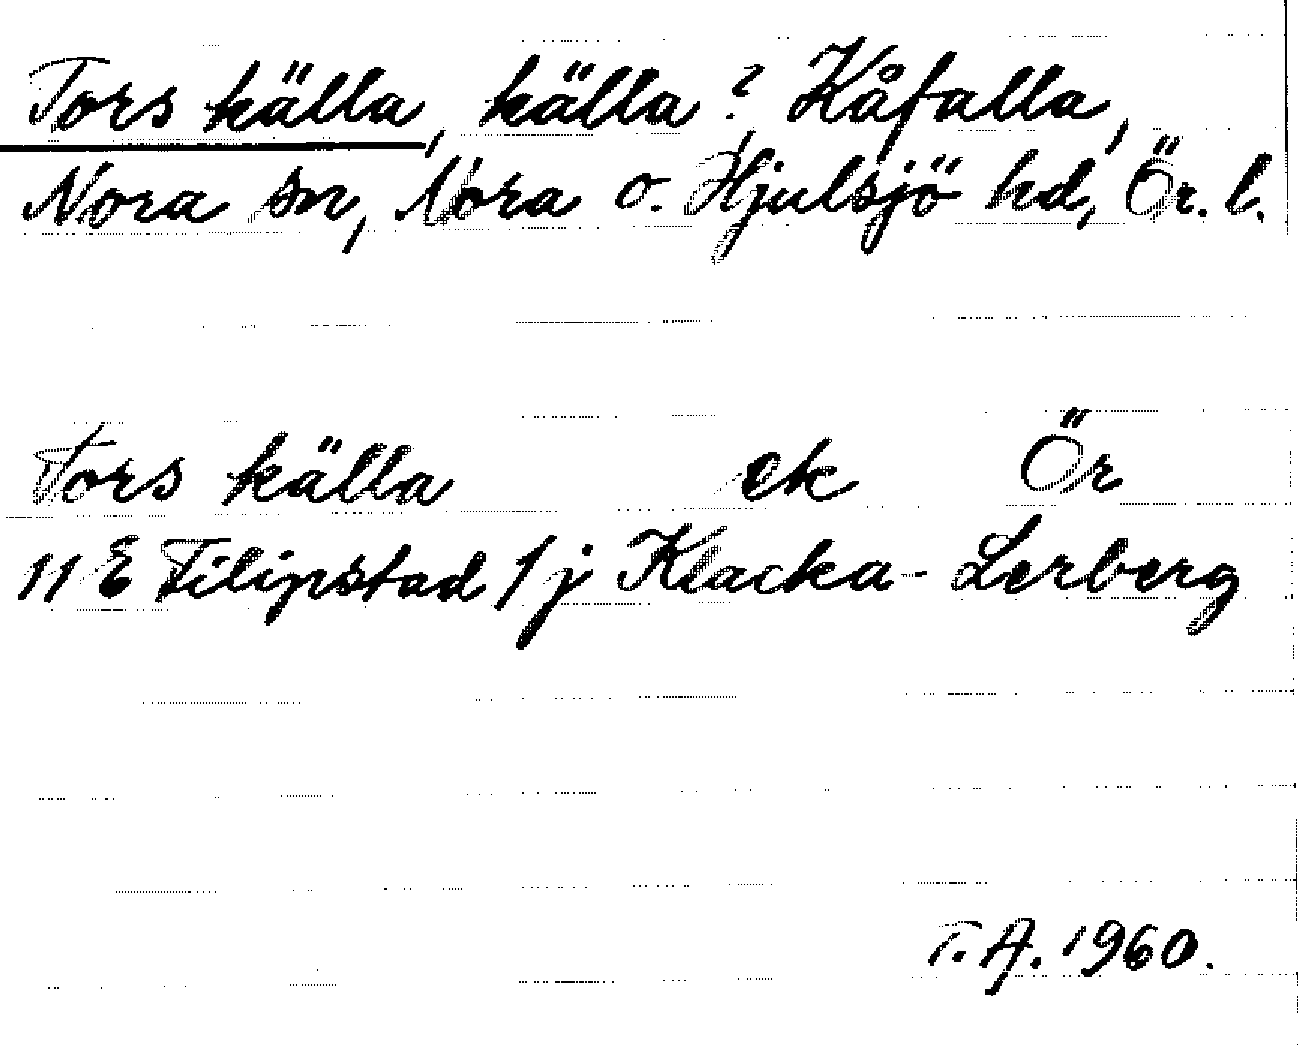 Tors källa, källa?, Kåfalla,
Nora sn, Nora o. Hjulsjö hd, Ör. l.
Tors källa ek Ör
11 E Filipstad 1j Klacka-Lerberg
T.A. 1960.